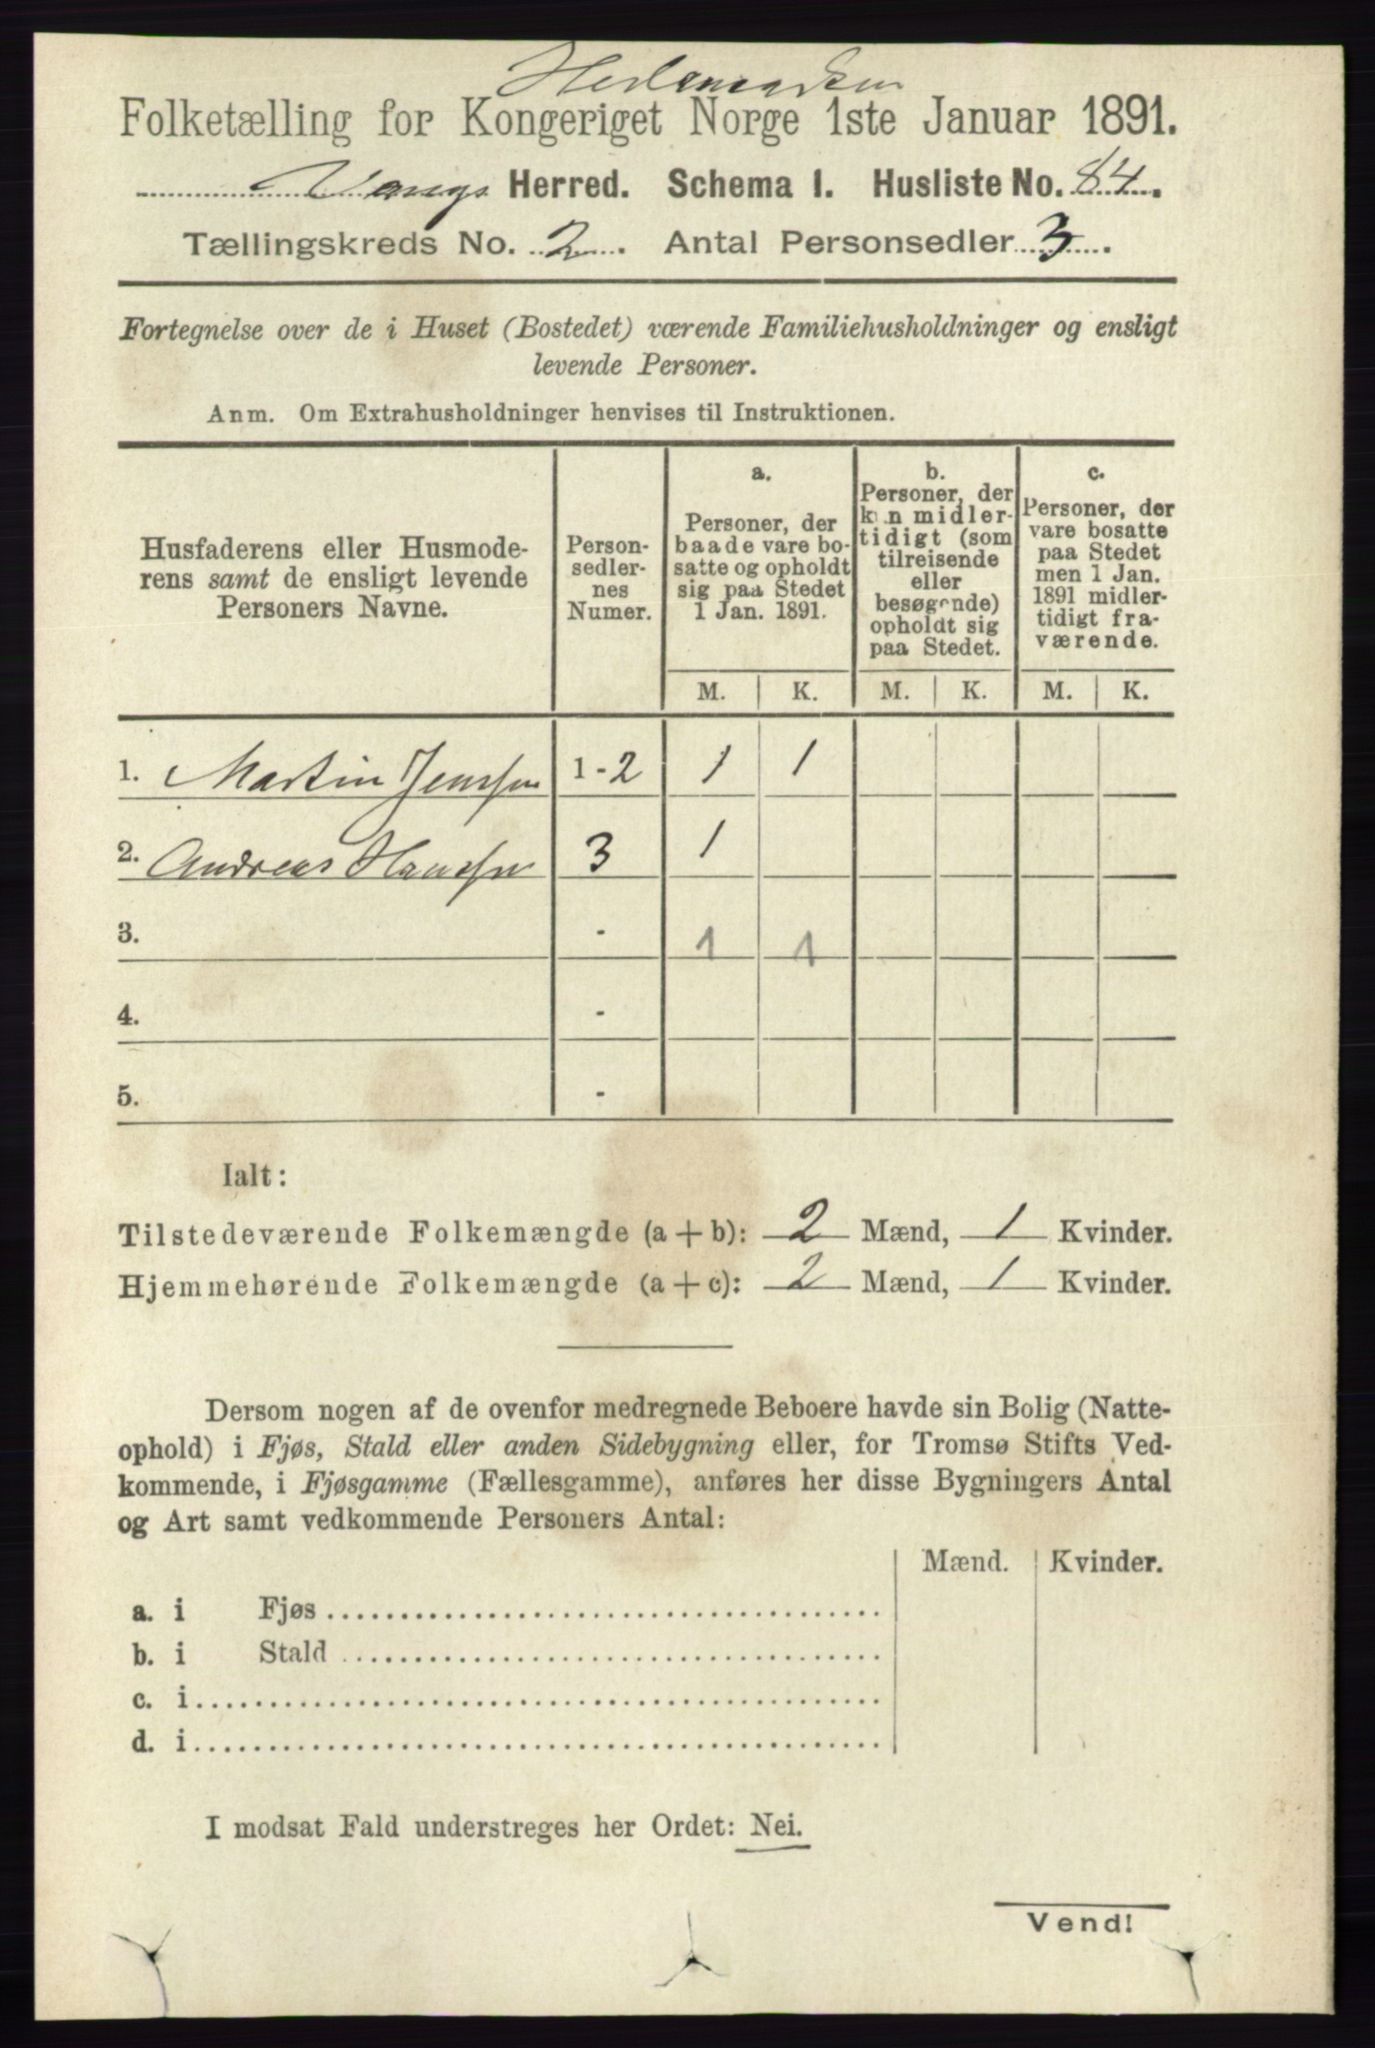 Hedemarken
Folketælling for Kongeriget Norge 1ste Januar 1891.
Vangs Herred. Schema 1. Husliste No. 84.
Tællingskreds No. 2. Antal Personsedler 3.
Fortegnelse over de i Huset (Bostedet) værende Familiehusholdninger og ensligt
levende Personer.
Anm. Om Extrahusholdninger henvises til Instruktionen.
Husfaderens eller Husmode-
rens samt de ensligt levende
Personers Navne.
Person-
sedler-
nes
Numer.
a.
Personer, der
baade vare bo-
satte og opholdt
sig paa Stedet
1 Jan. 1891.
b.
Personer, der
kun midler-
tidigt (som
tilreisende
eller
besøgende)
opholdt sig
paa Stedet.
c.
Personer, der
vare bosatte
paa Stedet
men 1 Jan.
1891 midler-
tidigt fra-
værende.
M. K. M. K. M. K.
1. Martin Jenssen 1-2 1 1
2. Andreas Hanssen 3 1
3. - 1 1
4. -
5. -
Ialt:
Tilstedeværende Folkemængde (a + b): 2 Mænd, 1 Kvinder.
Hjemmehørende Folkemængde (a + c): 2 Mænd, 1 Kvinder.
Dersom nogen af de ovenfor medregnede Beboere havde sin Bolig (Natte-
ophold) i Fjøs, Stald eller anden Sidebygning eller, for Tromsø Stifts Ved-
kommende, i Fjøsgamme (Fællesgamme), anføres her disse Bygningers Antal
og Art samt vedkommende Personers Antal:
Mænd. Kvinder.
a. i Fjøs
b. i Stald
c. i
d. i
I modsat Fald understreges her Ordet: Nei.
Vend!